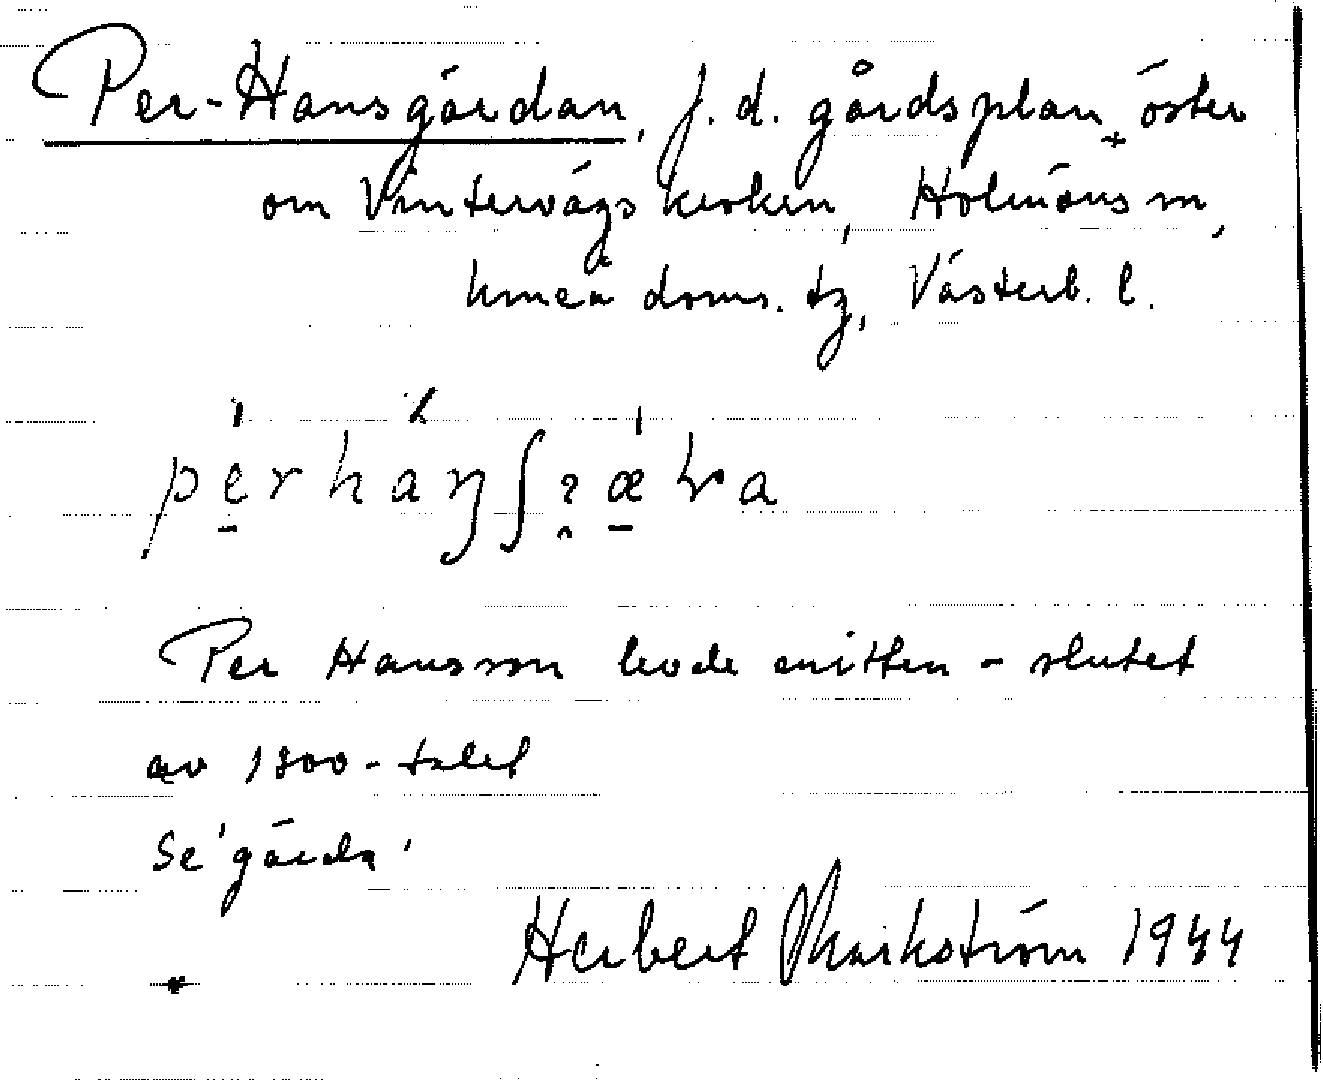 Per-Hansgärdan, f. d. gårdsplan öster
om Vintervägskroken, Holmöns sn,
Umeå doms. tg, Västerb. l.
Per Hansson levde mitten - slutet
av 1800-talet
Se 'gärda'
Herbert Markström 1944